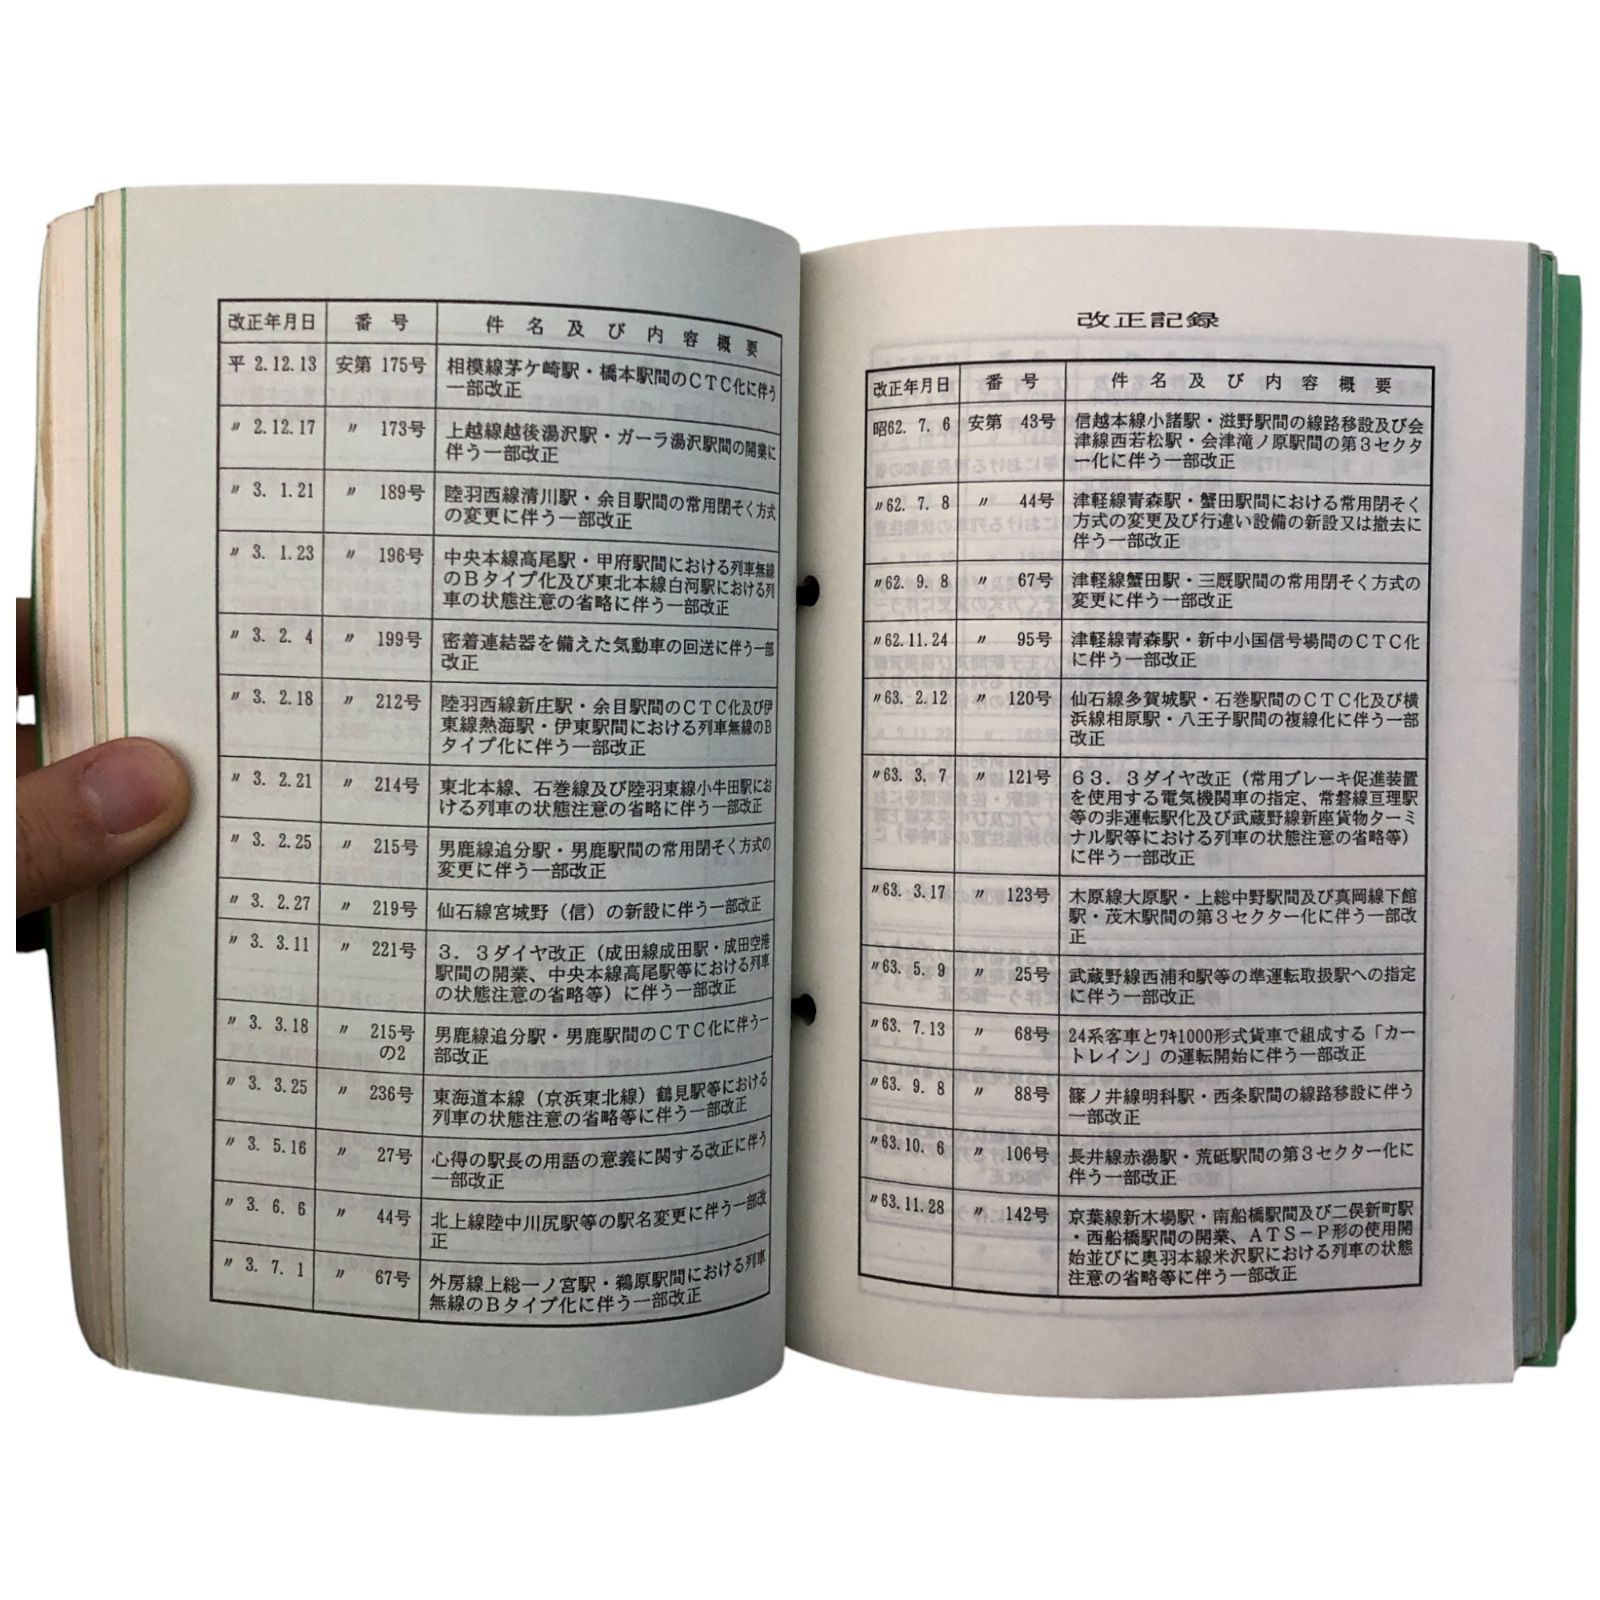 改正年月日 番号 件名及び内容概要
平 2.12.13 安第 175号 相模線茅ケ崎駅・橋本駅間のCTC化に伴う
一部改正
〃 2.12.17 〃 173号 上越線越後湯沢駅・ガーラ湯沢駅間の開業に
伴う一部改正
〃 3. 1.21 〃 189号 陸羽西線清川駅・余目駅間の常用閉そく方式
の変更に伴う一部改正
〃 3. 1.23 〃 196号 中央本線高尾駅・甲府駅間における列車無線
のBタイプ化及び東北本線白河駅における列
車の状態注意の省略に伴う一部改正
〃 3. 2. 4 〃 199号 密着連結器を備えた気動車の回送に伴う一部
改正
〃 3. 2.18 〃 212号 陸羽西線新庄駅・余目駅間のCTC化及び伊
東線熱海駅・伊東駅間における列車無線のB
タイプ化に伴う一部改正
〃 3. 2.21 〃 214号 東北本線、石巻線及び陸羽東線小牛田駅にお
ける列車の状態注意の省略に伴う一部改正
〃 3. 2.25 〃 215号 男鹿線追分駅・男鹿駅間の常用閉そく方式の
変更に伴う一部改正
〃 3. 2.27 〃 219号 仙石線宮城野(信)の新設に伴う一部改正
〃 3. 3.11 〃 221号 3.3ダイヤ改正(成田線成田駅・成田空港
駅間の開業、中央本線高尾駅等における列車
の状態注意の省略等)に伴う一部改正
〃 3. 3.18 〃 215号の2 男鹿線追分駅・男鹿駅間のCTC化に伴う一
部改正
〃 3. 3.25 〃 236号 東海道本線(京浜東北線)鶴見駅等における
列車の状態注意の省略等に伴う一部改正
〃 3. 5.16 〃 27号 心得の駅長の用語の意義に関する改正に伴う
一部改正
〃 3. 6. 6 〃 44号 北上線陸中川尻駅等の駅名変更に伴う一部改
正
〃 3. 7. 1 〃 67号 外房線上総一ノ宮駅・鵜原駅間における列車
無線のBタイプ化に伴う一部改正
改正記録
改正年月日 番号 件名及び内容概要
昭62. 7. 6 安第 43号 信越本線小諸駅・滋野駅間の線路移設及び会
津線西若松駅・会津滝ノ原駅間の第3セクタ
ー化に伴う一部改正
〃62. 7. 8 〃 44号 津軽線青森駅・蟹田駅間における常用閉そく
方式の変更及び行違い設備の新設又は撤去に
伴う一部改正
〃62. 9. 8 〃 67号 津軽線蟹田駅・三厩駅間の常用閉そく方式の
変更に伴う一部改正
〃62.11.24 〃 95号 津軽線青森駅・新中小国信号場間のCTC化
に伴う一部改正
〃63. 2.12 〃 120号 仙石線多賀城駅・石巻駅間のCTC化及び横
浜線相原駅・八王子駅間の複線化に伴う一部
改正
〃63. 3. 7 〃 121号 63.3ダイヤ改正(常用ブレーキ促進装置
を使用する電気機関車の指定、常磐線亘理駅
等の非運転駅化及び武蔵野線新座貨物ターミ
ナル駅等における列車の状態注意の省略等)
に伴う一部改正
〃63. 3.17 〃 123号 木原線大原駅・上総中野駅間及び真岡線下館
駅・茂木駅間の第3セクター化に伴う一部改
正
〃63. 5. 9 〃 25号 武蔵野線西浦和駅等の準運転取扱駅への指定
に伴う一部改正
〃63. 7.13 〃 68号 24系客車とワキ1000形式貨車で組成する「カー
トレイン」の運転開始に伴う一部改正
〃63. 9. 8 〃 88号 篠ノ井線明科駅・西条駅間の線路移設に伴う
一部改正
〃63.10. 6 〃 106号 長井線赤湯駅・荒砥駅間の第3セクター化に
伴う一部改正
〃63.11.28 〃 142号 京葉線新木場駅・南船橋駅間及び二俣新町駅
・西船橋駅間の開業、ATS-P形の使用開
始並びに奥羽本線米沢駅における列車の状態
注意の省略等に伴う一部改正